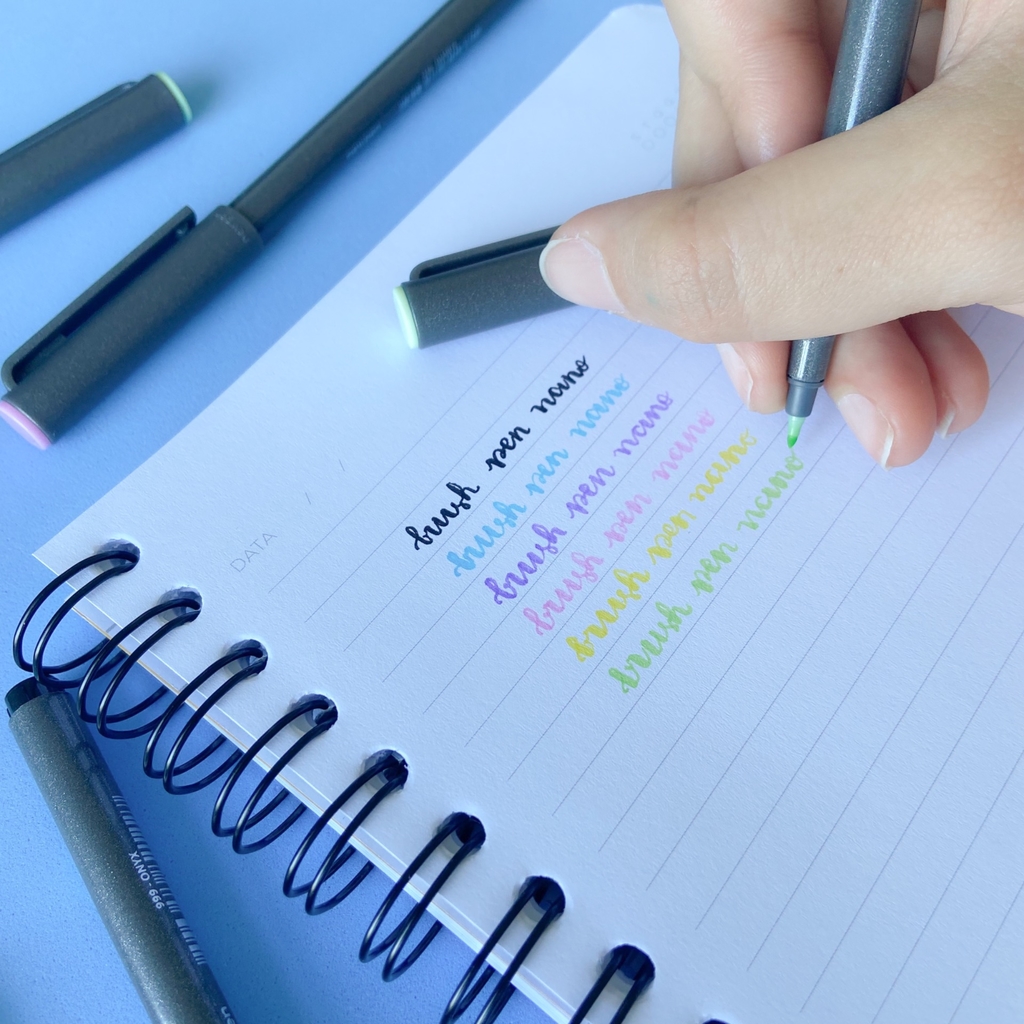 DATA / /
brush pen nano
brush pen nano
brush pen nano
brush pen nano
brush pen nano
brush pen nano
ONYX - 666